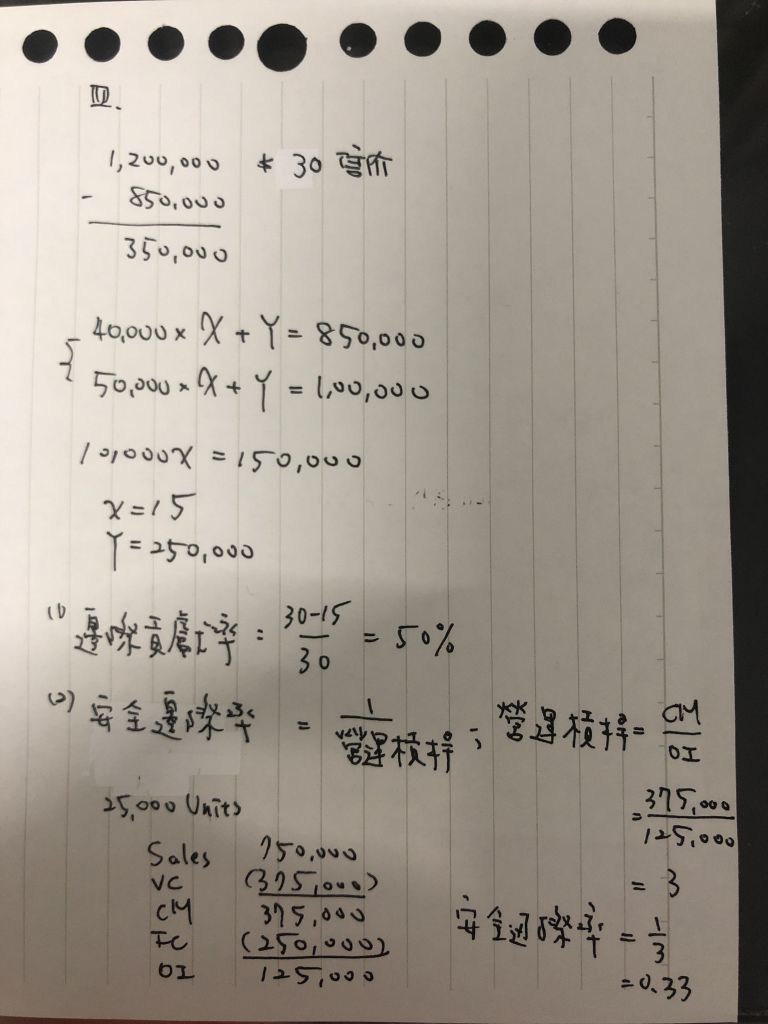 Ⅲ.
1,200,000 * 30 售价
- 850,000
350,000
40,000 × X + Y = 850,000
50,000 × X + Y = 1,00,000
10,000X = 150,000
X = 15
Y = 250,000
(1) 邊際貢獻率 = 30-15 / 30 = 50%
(2) 安全邊際率 = 1 / 營運槓桿 ; 營運槓桿 = CM / OI
25,000 Units
= 375,000 / 125,000
Sales 750,000
VC (375,000) = 3
CM 375,000
FC (250,000) 安全邊際率 = 1 / 3
OI 125,000 = 0.33